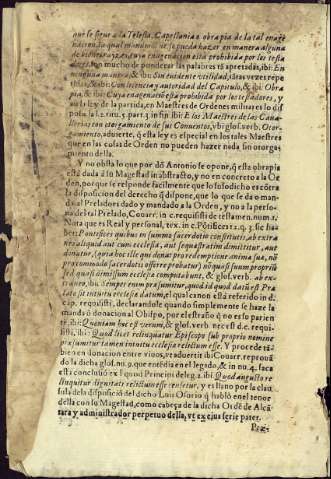 que se sigue a la Yglesia, Capellania o obrapia de la tal enage-
nacion, la qual manda no se pueda hazer en manera alguna
de bienes rayzes, cuya enagenacion está prohibida por los testa
dores, son mucho de ponderar las palabras tā apretadas, ibi: En
ninguna manera, & ibi: Sin euidente vtilidad, idque vezes repe
tidas, & ibi: Con licencia y autoridad del Capitulo, & ibi: Obra
pia, & ibi: Cuya enagenaciō está prohibida por los testadores, y
au la ley de la partida, en Maestres de Ordenes militares lo dis
pone la l. 2. titu. 5. part. 5. in fin. ibi: E los Maestres de las Caua-
llerias con otorgamiento de sus Conuentos, vbi glos. verb. Oto-
gamiento, aduierte, q̄ esta ley es especial en los tales Maestres
que en las cosas de Orden no pueden hazer nada sin otorga-
miento della.
Y no obsta lo que por dō Antonio se opone, q̄ esta obrapia
está dada a su Magestad in abstracto, y no en concreto a la Or
den, porque se responde facilmente que lo susodicho es cōtra
la disposicion del derecho q̄ dispone, que lo que se da o man-
da al Prelado es dado y mandado a la Orden, y no a la perso-
na del tal Prelado, Couarr. in c. requisisti de testamen. num. 1.
Nota que es Real y personal, tex. in c. Pōtifices 12. q. 3. sic ha-
bet: Pontifices quibus in summo sacerdotio constitutis, ab extra
neo aliquid aut cum ecclesia, aut sequestratim dimittitur, aut
donatur, (quia hoc ille qui donat pro redemptione anima sue, nō
pro commodo sacerdotis offerre probatur) nō quasi suum propriū
sed quasi dimissum ecclesie computabunt, & glos. verb. ab ex-
traneo, ibi: Semper enim præsumitur, quod id quod datū est Præ
lato sit intuitu ecclesie datum, el qual canon está referido in d.
cap. requisisti, declarandose quando simplemente se haze la
manda ò donacion al Obispo, por el estraño q̄ no es su parien
te ibi: Quoniam hoc est verum, & glos. verb. nec est d. c. requi-
sisti, ibi: Quod licet relinquatur Episcopo sub proprio nomine
præsumitur tamen intuitu ecclesie relictum esse. Y procede tā-
bien en donacion entre viuos, vt aduertit ibi Couarr. reprouā
do la dicha glos. nu. 9. que entēdia en el legado, & in nu. 4. saca
esta conclusiō ex l. quod Principi de leg. 2. ibi: Quod angusto re
linquitur dignitati relictum esse censetur, y es llano por la clau
sula de la disposiciō del dicho Luis Osorio q̄ habló en el tenor
della con su Magestad, como cabeça de la dicha Ordē de Alcā
tara y administrador perpetuo della, vt ex eius serie patet.
Præ-